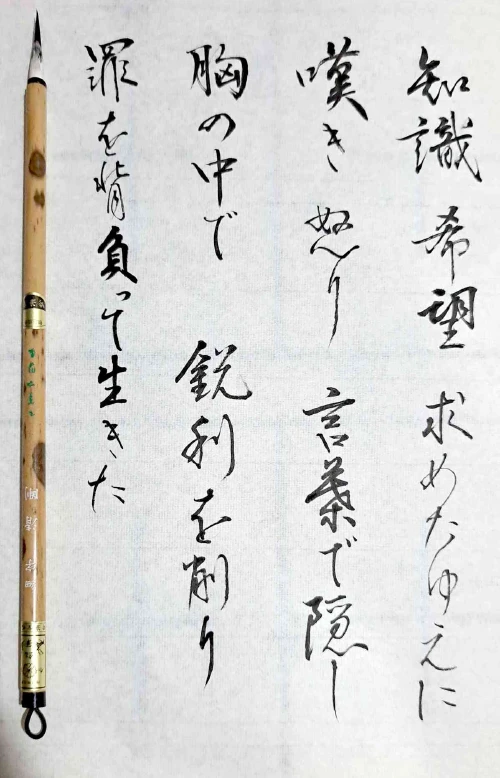 知識 希望 求めたゆえに
嘆き 怒り 言葉で隠し
胸の中で 鋭利を削り
罪を背負って生きた